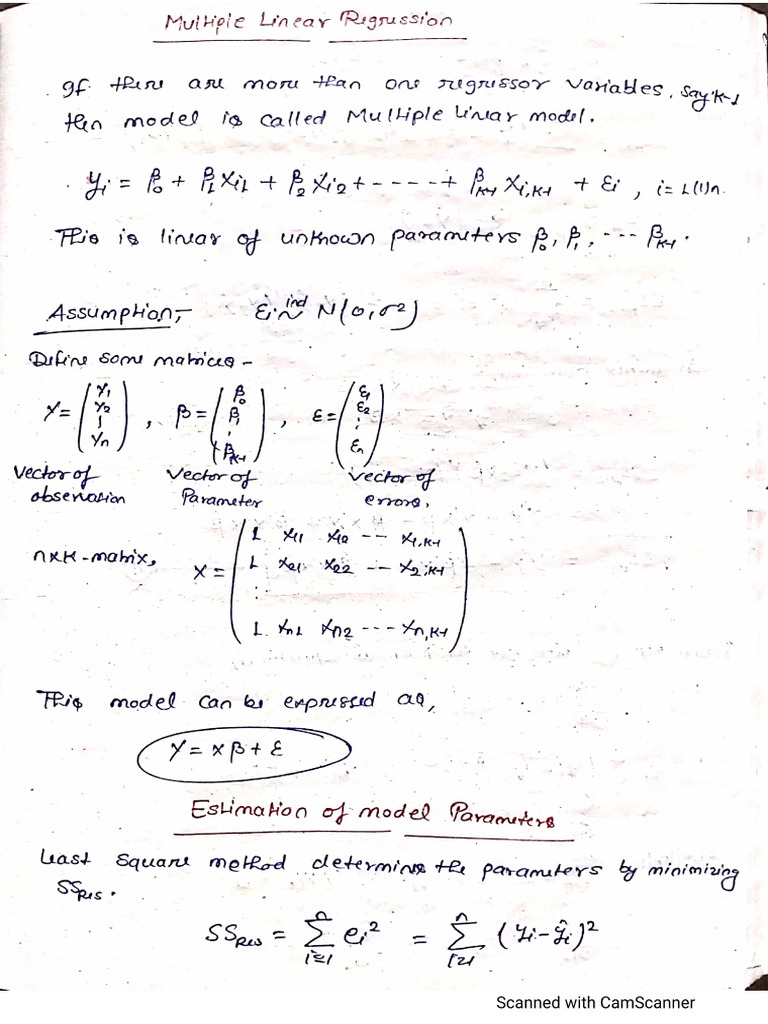 Multiple Linear Regression
If there are more than one regressor variables, say K-1
then model is called Multiple linear model.
yi = β0 + β1 xi1 + β2 xi2 + ----- + βK-1 xi,K-1 + εi , i = 1(1)n.
This is linear of unknown parameters β0, β1, --- βK-1.
Assumption,- εi ind~ N(0, σ2)
Define some matrices -
Y = (y1 y2 ⋮ yn) , β = (β0 β1 ⋮ βK-1) , ε = (ε1 ε2 ⋮ εn)
Vector of observation Vector of Parameter Vector of errors.
n×K - matrix,
X = (1 x11 x12 -- x1,K-1
1 x21 x22 -- x2,K-1
⋮
1 xn1 xn2 --- xn,K-1)
This model can be expressed as,
Y = Xβ + ε
Estimation of model Parameters
Least square method determines the parameters by minimizing
SSRes.
SSRes = Σ i=1 n ei2 = Σ i=1 n (yi - ŷi)2
Scanned with CamScanner